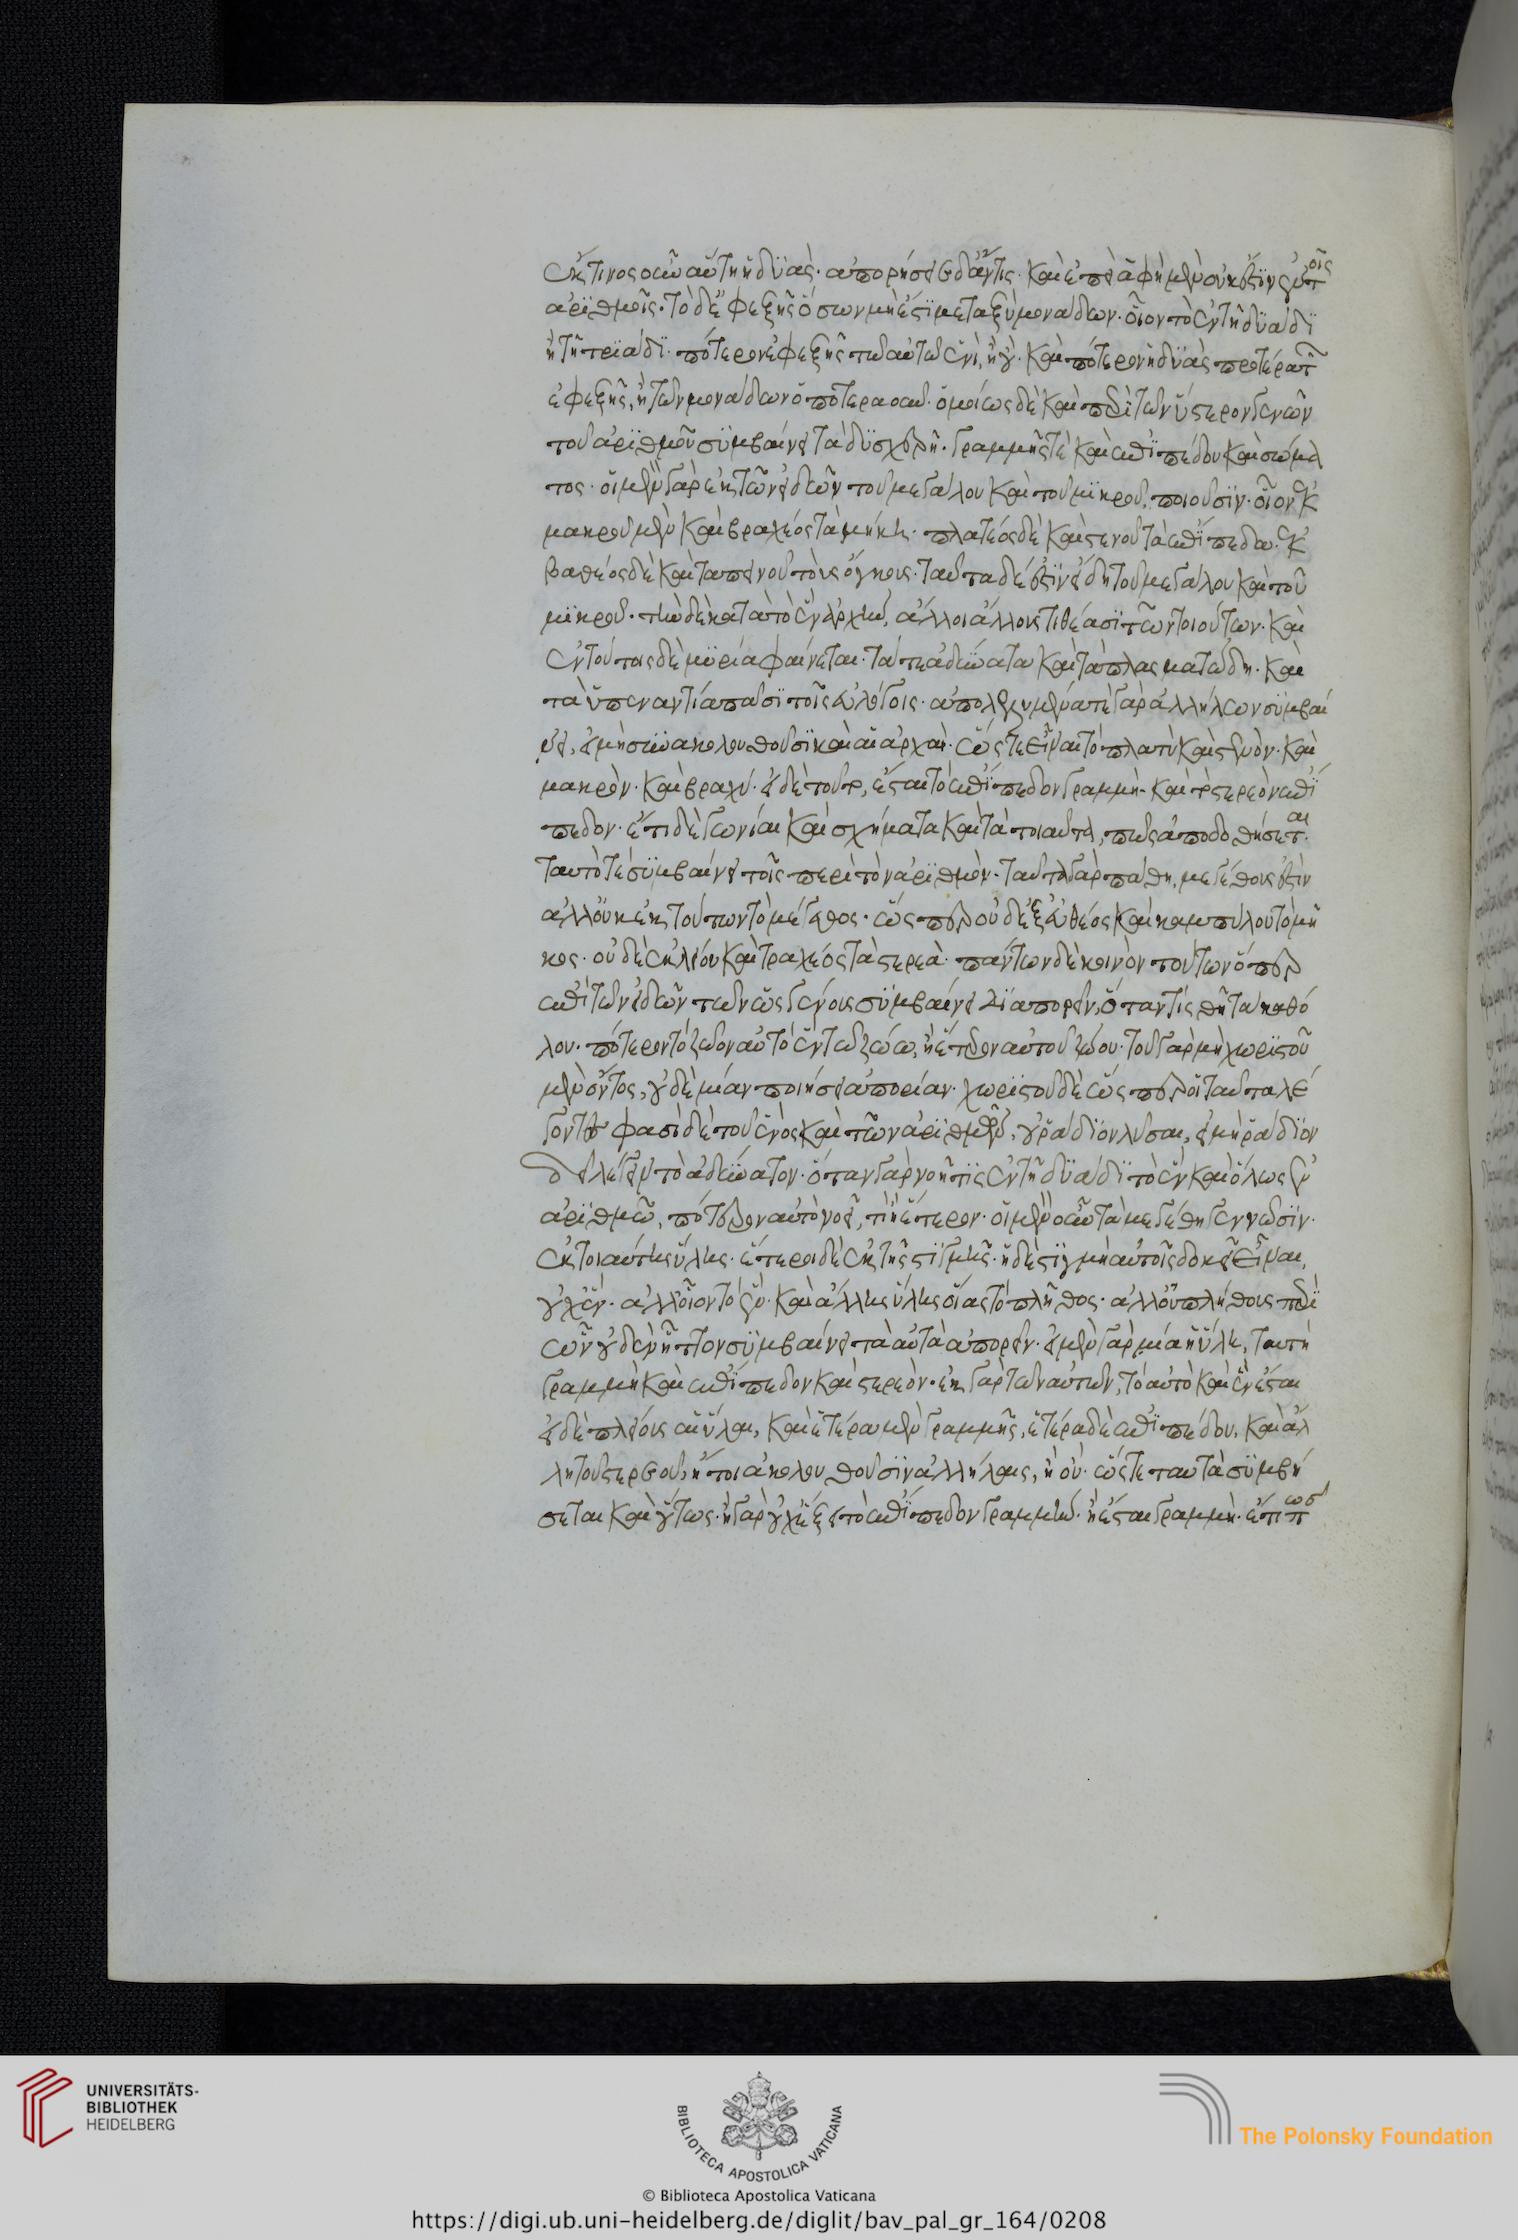 ἐκ τίνος οὖν αὕτη ἡ δυάς· ἀπορήσειε δ' ἄν τις· καὶ ἐπεὶ ἁφὴ μὲν οὐκ ἔστιν ἐν τοῖς
ἀριθμοῖς· τὸ δ' ἐφεξῆς ὅσων μὴ ἔστι μεταξὺ μονάδων· οἷον τὸ ἐν τῇ δυάδι
ἢ τῇ τριάδι· πότερον ἐφεξῆς τῶ αὐτῶ ἑνὶ, ἢ οὔ· καὶ πότερον ἡ δυὰς προτέρα τῆ
ἐφεξῆς, ἢ τῶν μονάδων ὁποτεραοῦν· ὁμοίως δὲ καὶ περὶ τῶν ὕστερον γενῶν
τοῦ ἀριθμοῦ συμβαίνει τὰ δυσχερῆ· γραμμῆς τὲ καὶ ἐπιπέδου καὶ σώμα
τος· οἱ μὲν γὰρ ἐκ τῶν εἰδῶν τοῦ μεγάλου καὶ τοῦ μικροῦ ποιοῦσιν· οἷον ἐκ
μακροῦ μὲν καὶ βραχέος τὰ μήκη· πλατέος δὲ καὶ στενοῦ τὰ ἐπίπεδα· ἐκ
βαθέος δὲ καὶ ταπεινοῦ τοὺς ὄγκους· ταῦτα δέ ἐστιν εἴδη τοῦ μεγάλου καὶ τοῦ
μικροῦ· τὴν δὲ κατὰ τὸ ἓν ἀρχὴν, ἄλλοι ἄλλως τιθέασι τῶν τοιούτων· καὶ
ἐν τούτοις δὲ μυρία φαίνεται· τά τε ἀδύνατα καὶ τὰ πλασματώδη· καὶ
τὰ ὑπεναντία πᾶσι τοῖς εὐλόγοις· ἀπολελυμένα τὲ γὰρ ἀλλήλων συμβαί
νει, εἰ μὴ συνακολουθοῦσι καὶ αἱ ἀρχαὶ· ὥστε εἶναι τὸ πλατὺ καὶ στενὸν· καὶ
μακρὸν· καὶ βραχύ· εἰ δὲ τοῦτο, ἔσται τὸ ἐπίπεδον γραμμὴ· καὶ τὸ στερεὸν ἐπί
πεδον· ἔτι δὲ γωνίαι καὶ σχήματα καὶ τὰ τοιαῦτα, πῶς ἀποδοθήσεται·
ταυτὸ τὲ συμβαίνει τοῖς περὶ τὸν ἀριθμὸν· ταῦτα γὰρ πάθη, μεγέθους ἐστὶν
ἀλλ' οὐκ ἐκ τούτων τὸ μέγεθος· ὥσπερ οὐδ' ἐξ εὐθέος καὶ καμπύλου τὸ μῆ
κος· οὐδὲ ἐκ λείου καὶ τραχέος τὰ στερεὰ· πάντων δὲ κοινὸν τούτων ὅπερ
ἐπὶ τῶν εἰδῶν τῶν ὡς γένους συμβαίνει διαπορεῖν, ὅταν τίς θῆ τὰ καθό
λου· πότερον τὸ ζῶον αὐτὸ ἐν τῶ ζώω, ἢ ἕτερον αὐτοῦ ζώου· τοῦ γὰρ μὴ χωριστοῦ
μὲν ὄντος, οὐδεμίαν ποιήσει ἀπορίαν· χωριστοῦ δὲ ὥσπερ οἱ ταῦτα λέ
γοντες φασὶ δὲ τοῦ ἑνὸς καὶ τῶν ἀριθμῶν, οὐ ῥάδιον λῦσαι, εἰ μὴ ῥάδιον
δεῖ λέγειν τὸ ἀδύνατον· ὅταν γὰρ νοῆ τὶς ἐν τῆ δυάδι τὸ ἓν καὶ ὅλως ἐν
ἀριθμῶ, πότερον αὐτὸ νοεῖ, τὶ ἢ ἕτερον· οἱ μὲν οὖν τὰ μεγέθη γεννῶσιν·
ἐκ τοιαύτης ὕλης· ἕτεροι δὲ ἐκ τῆς στιγμῆς· ἡ δὲ στιγμὴ αὐτοῖς δοκεῖ εἶναι,
οὐχ ἓν· ἀλλ' οἷον τὸ ἓν· καὶ ἄλλης ὕλης οἵας τὸ πλῆθος· ἀλλ' οὐ πλήθους περὶ
ὧν οὐδὲν ἧττον συμβαίνει τὰ αὐτὰ ἀπορεῖν· εἰ μὲν γὰρ μία ἡ ὕλη, ταυτὴ
γραμμὴ καὶ ἐπίπεδον καὶ στερεὸν· ἐκ γὰρ τῶν αὐτῶν, τὸ αὐτὸ καὶ ἓν ἔσται
εἰ δὲ πλείους αἱ ὗλαι, καὶ ἑτέρα μὲν γραμμῆς, ἑτέρα δὲ ἐπιπέδου, καὶ ἄλ
λη τοῦ στερεοῦ, ἤτοι ἀκολουθοῦσιν ἀλλήλαις, ἢ οὐ· ὥστε ταυτὰ συμβή
σεται καὶ οὕτως· ἢ γὰρ οὐχ ἕξει τὸ ἐπίπεδον γραμμὴν· ἢ ἔσται γραμμὴ· ἔτι πως
UNIVERSITÄTS-
BIBLIOTHEK
HEIDELBERG
BIBLIOTECA APOSTOLICA VATICANA
The Polonsky Foundation
© Biblioteca Apostolica Vaticana
https://digi.ub.uni-heidelberg.de/diglit/bav_pal_gr_164/0208